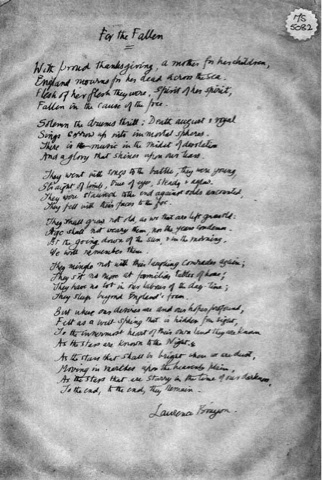 For the Fallen
MS
5082
With proud thanksgiving, a mother for her children,
England mourns for her dead across the sea.
Flesh of her flesh they were, spirit of her spirit,
Fallen in the cause of the free.
Solemn the drums thrill: Death august & royal
Sings sorrow up into immortal spheres.
There is music in the midst of desolation
And a glory that shines upon our tears.
They went with songs to the battle, they were young,
Straight of limb, true of eye, steady & aglow.
They were staunch to the end against odds uncounted,
They fell with their faces to the foe.
They shall grow not old, as we that are left grow old:
Age shall not weary them, nor the years condemn.
At the going down of the sun & in the morning,
We will remember them.
They mingle not with their laughing comrades again;
They sit no more at familiar tables of home;
They have no lot in our labour of the day-time;
They sleep beyond England's foam.
But where our desires are and our hopes profound,
Felt as a well-spring that is hidden from sight,
To the innermost heart of their own land they are known
As the stars are known to the Night;
As the stars that shall be bright when we are dust,
Moving in marches upon the heavenly plain,
As the stars that are starry in the time of our darkness,
To the end, to the end, they remain.
Laurence Binyon.